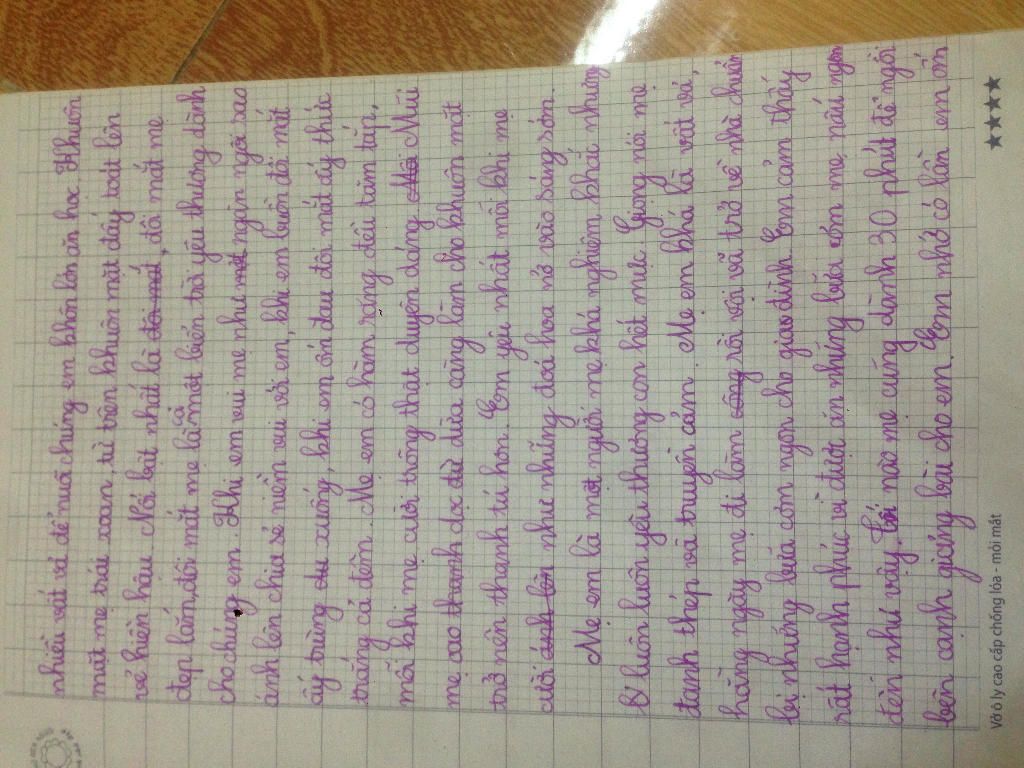 nhiều vất vả để nuôi chúng em khôn lớn ăn học Khuôn
mặt mẹ trái xoan, từ trên khuôn mặt đấy toát lên
vẻ hiền hậu Nổi bật nhất là đôi mắt, đôi mắt mẹ
đẹp lắm, đôi mắt mẹ là cả một biển trời yêu thương dành
cho chúng em. Khi em vui mẹ như một ngàn ngôi sao
ánh lên chia sẻ niềm vui với em, khi em buồn đôi mắt
ấy trùng du xuống, khi em ốn đau đôi mắt ấy thức
trắng cả đêm. Mẹ em có hàm răng đều tăm tắp,
mỗi khi mẹ cười trông thật duyên dáng Mũi
mẹ cao thanh dọc dừ dừa càng làm cho khuôn mặt
trở nên thanh tú hơn. Em yêu nhất mỗi khi mẹ
cười ánh lên như những đoá hoa nở vào sáng sớn.
Mẹ em là một người mẹ khá nghiêm khắc nhưng
luôn luôn yêu thương con hết mực. Giọng nói mẹ
đanh thép và truyền cảm. Mẹ em khá là vất vả,
hằng ngày mẹ đi làm rồi vội vã trở về nhà chuẩn
bị những bữa cơm ngon cho giao đình Em cảm thấy
rất hạnh phúc vì được ăn những bữa cơm mẹ nấu ngon
đến như vậy. tối nào mẹ cũng dành 30 phút để ngồi
bên cạnh giảng bài cho em. Em nhớ có lần em ốn
Vở ô ly cao cấp chống lóa - mỏi mắt
★★★★